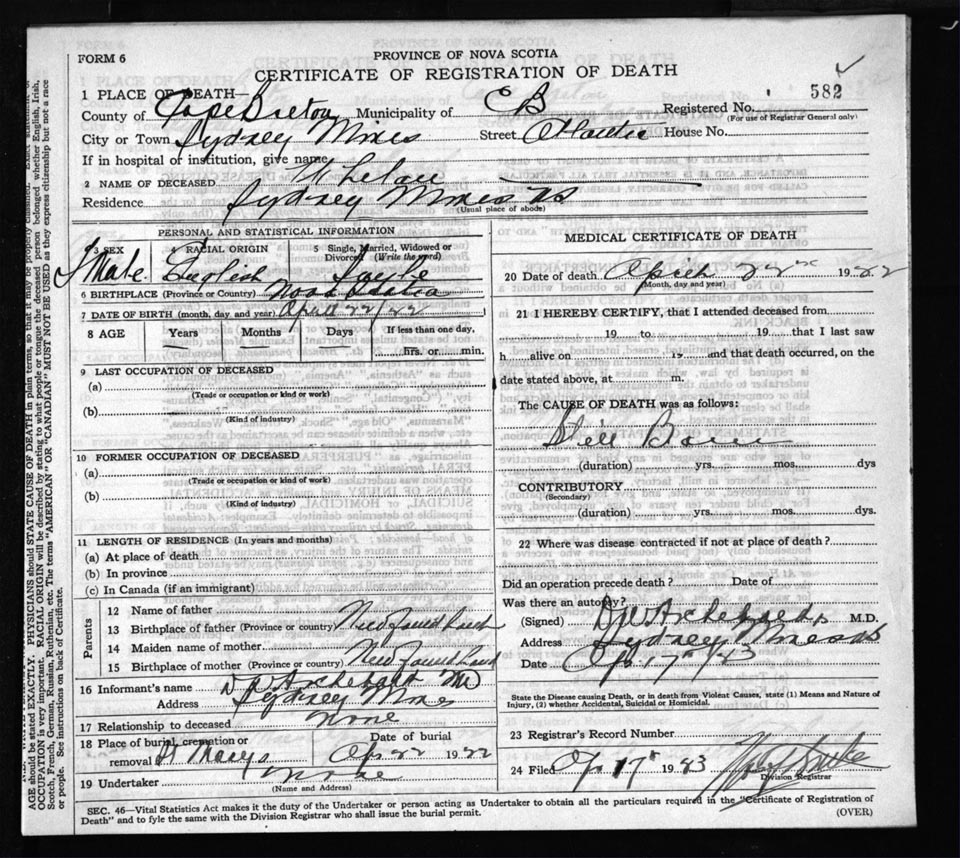 FORM 6
PROVINCE OF NOVA SCOTIA
CERTIFICATE OF REGISTRATION OF DEATH
1 PLACE OF DEATH—
County of Cape Breton Municipality of C B Registered No. 582
(For use of Registrar General only)
City or Town Sydney Mines Street Atlantic House No.
If in hospital or institution, give name
2 NAME OF DECEASED Whelan
Residence Sydney Mines NS
(Usual place of abode)
PERSONAL AND STATISTICAL INFORMATION
3 SEX 4 RACIAL ORIGIN 5 Single, Married, Widowed or Divorced (Write the word)
Male English Single
6 BIRTHPLACE (Province or Country) Nova Scotia
7 DATE OF BIRTH (month, day and year) April 22/22
8 AGE Years Months Days If less than one day,
hrs. or min.
9 LAST OCCUPATION OF DECEASED
(a)
(Trade or occupation or kind or work)
(b)
(Kind of industry)
10 FORMER OCCUPATION OF DECEASED
(a)
(Trade or occupation or kind or work)
(b)
(Kind of industry)
11 LENGTH OF RESIDENCE (In years and months)
(a) At place of death
(b) In province
(c) In Canada (if an immigrant)
Parents
12 Name of father
13 Birthplace of father (Province or country) Newfoundland
14 Maiden name of mother
15 Birthplace of mother (Province or country) Newfoundland
16 Informant's name D W Archibald MD
Address Sydney Mines
17 Relationship to deceased None
18 Place of burial, cremation or removal St Marys Date of burial Apr 22 1922
19 Undertaker none
(Name and Address)
MEDICAL CERTIFICATE OF DEATH
20 Date of death April 22nd 1922
(Month, day and year)
21 I HEREBY CERTIFY, that I attended deceased from
19 to 19 that I last saw
h alive on 19 and that death occurred, on the
date stated above, at m.
The CAUSE OF DEATH was as follows:
Still Born
(duration) yrs. mos. dys
CONTRIBUTORY
(Secondary)
(duration) yrs. mos. dys.
22 Where was disease contracted if not at place of death?
Did an operation precede death? Date of
Was there an autopsy?
(Signed) D W Archibald M.D.
Address Sydney Mines NS
Date Apr 17th/23
State the Disease causing Death, or in death from Violent Causes, state (1) Means and Nature of Injury, (2) whether Accidental, Suicidal or Homicidal.
23 Registrar's Record Number
24 Filed Apr 17th 1923
Division Registrar
SEC. 46—Vital Statistics Act makes it the duty of the Undertaker or person acting as Undertaker to obtain all the particulars required in the "Certificate of Registration of
Death" and to fyle the same with the Division Registrar who shall issue the burial permit. (OVER)
AGE should be stated EXACTLY. PHYSICIANS should STATE CAUSE OF DEATH in plain terms, so that it may be properly classified. Exact statement of
OCCUPATION is very important. RACIAL ORIGIN will be described by stating to what people or tongue the deceased person belonged whether English, Irish,
Scotch, French, German, Russian, Ruthenian, etc. The terms "AMERICAN" OR "CANADIAN" MUST NOT BE USED as they express citizenship but not a race
or people. See instructions on back of Certificate.